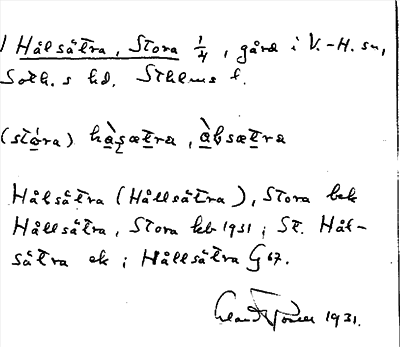 1 Hålsätra, Stora 1/4, gård i V.-H. sn,
Soth.s hd. Sthlms l.
(stóra) hàsætra, àbsætra
Hålsätra (Hållsätra), Stora bek
Hållsätra, Stora kb 1931; St. Hål-
sätra ek; Hållsätra G 67.
1931.